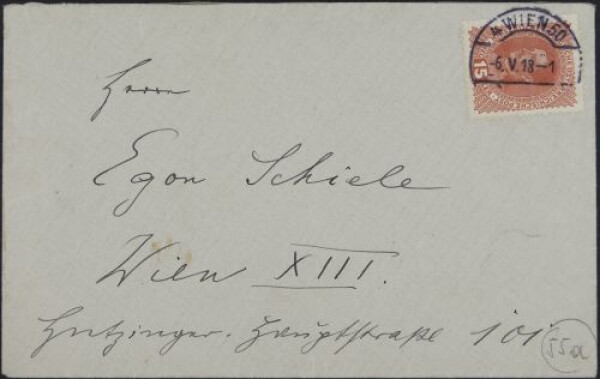 4 WIEN 50
-6.V.18-1
15
Herrn
Egon Schiele
Wien XIII.
Hietzinger-Hauptstraße 101
55a